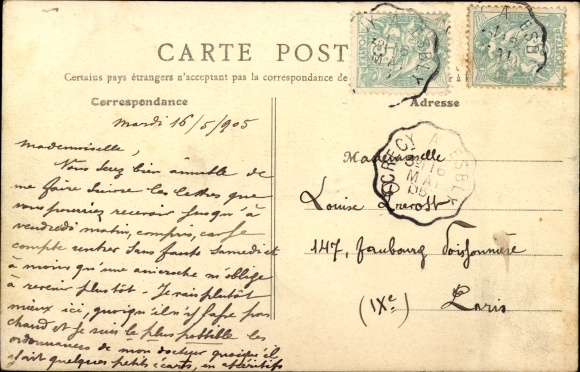 CARTE POST
Certains pays étrangers n'acceptant pas la correspondance de
Correspondance
Adresse
mardi 16/5/905
Mademoiselle,
Vous serez bien aimable de
me faire suivre les lettres que
vous pourriez recevoir jusqu'à
vendredi matin, compris, car je
compte rentrer sans faute samedi et
à moins qu'une anicroche m'oblige
à revenir plus tôt - Je vais plutôt
mieux ici, quoiqu'il n'y fasse pas
chaud et je suis le plus possible les
ordonnances de mon docteur quoiqu'il
y ait quelques petits écarts, en apéritifs
Mademoiselle
Louise Prevost
147, Faubourg Poissonnière
(IXe) Paris
CRECY A ESBLY
16
MAI